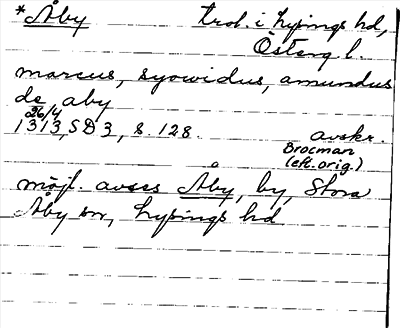 *Åby trol. i Lysings hd,
Österg l.
marcus, syowidus, amundus
de aby
26/4
1313, SD 3, s. 128. avskr.
Brocman
(eft. orig.)
möjl. avses Åby, by, Stora
Åby sn, Lysings hd